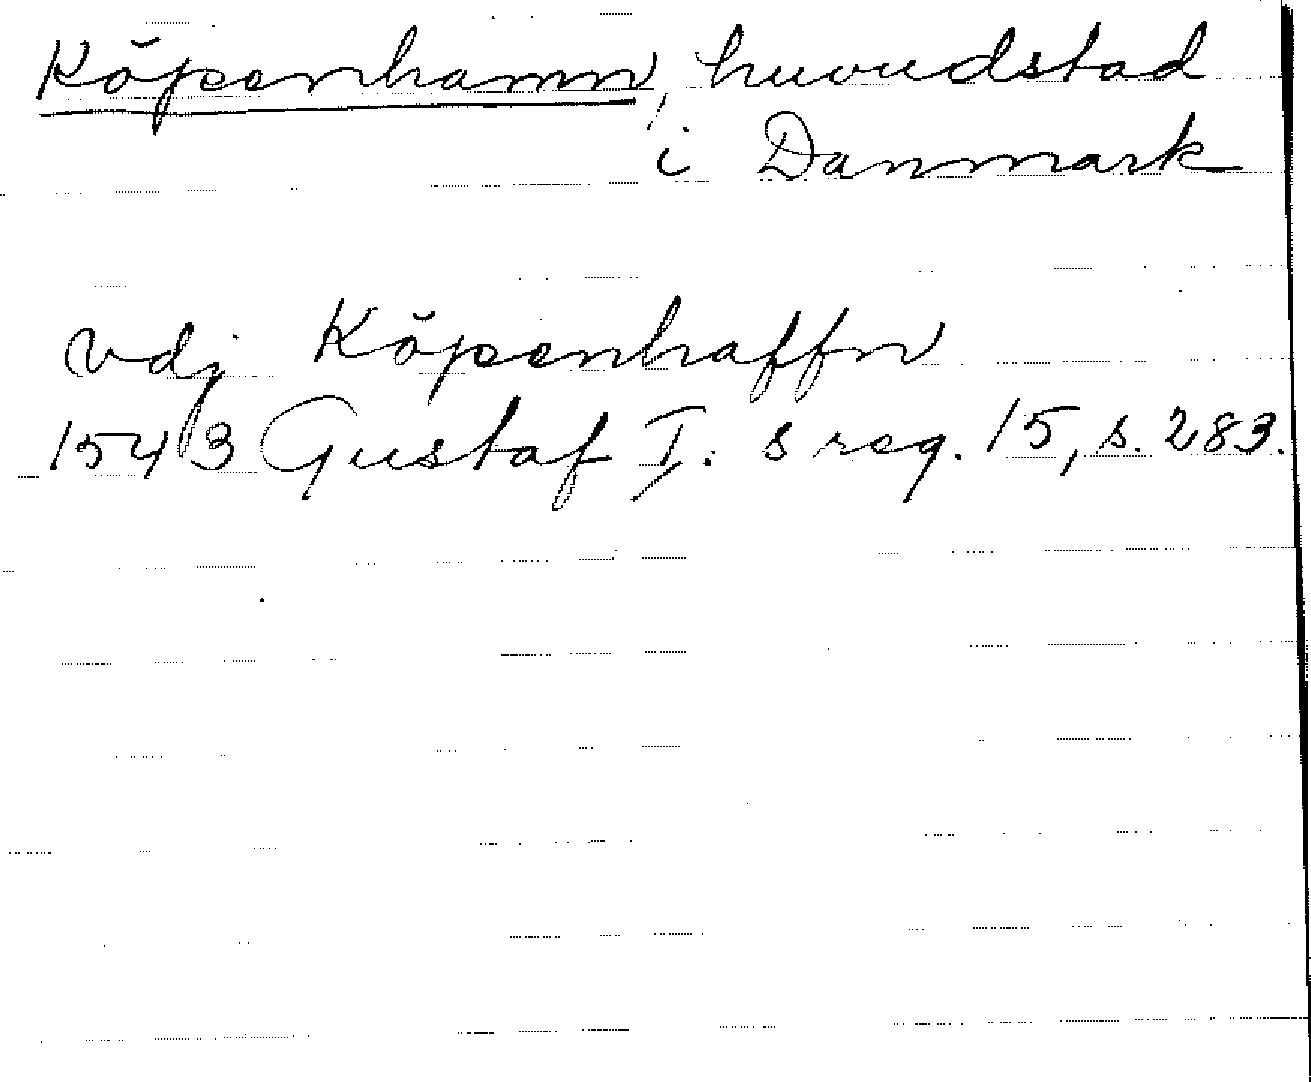 Köpenhamn, huvudstad
i Danmark
vdj Köpenhaffn
1543 Gustaf I:s reg. 15, s. 283.